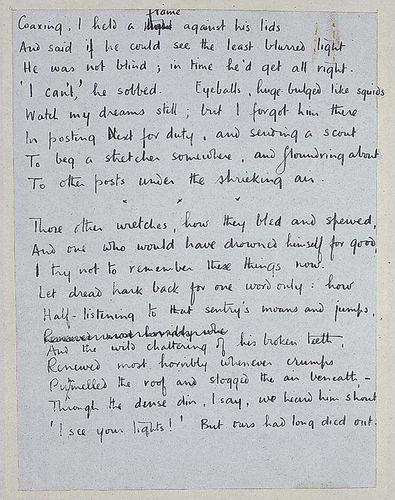 Coaxing, I held a flame against his lids
And said if he could see the least blurred light
He was not blind; in time he'd get all right.
'I can't,' he sobbed. Eyeballs, huge bulged like squids
Watch my dreams still; but I forgot him there
In posting Next for duty, and sending a scout
To beg a stretcher somewhere, and floundring about
To other posts under the shrieking air.
* * *
Those other wretches, how they bled and spewed,
And one who would have drowned himself for good,
I try not to remember these things now.
Let dread hark back for one word only: how
Half-listening to that sentry's moans and jumps,
Renewed most horribly whe
And the wild chattering of his broken teeth,
Renewed most horribly whenever crumps
Pummelled the roof and slogged the air beneath –
Through the dense din, I say, we heard him shout
'I see your lights!' But ours had long died out.